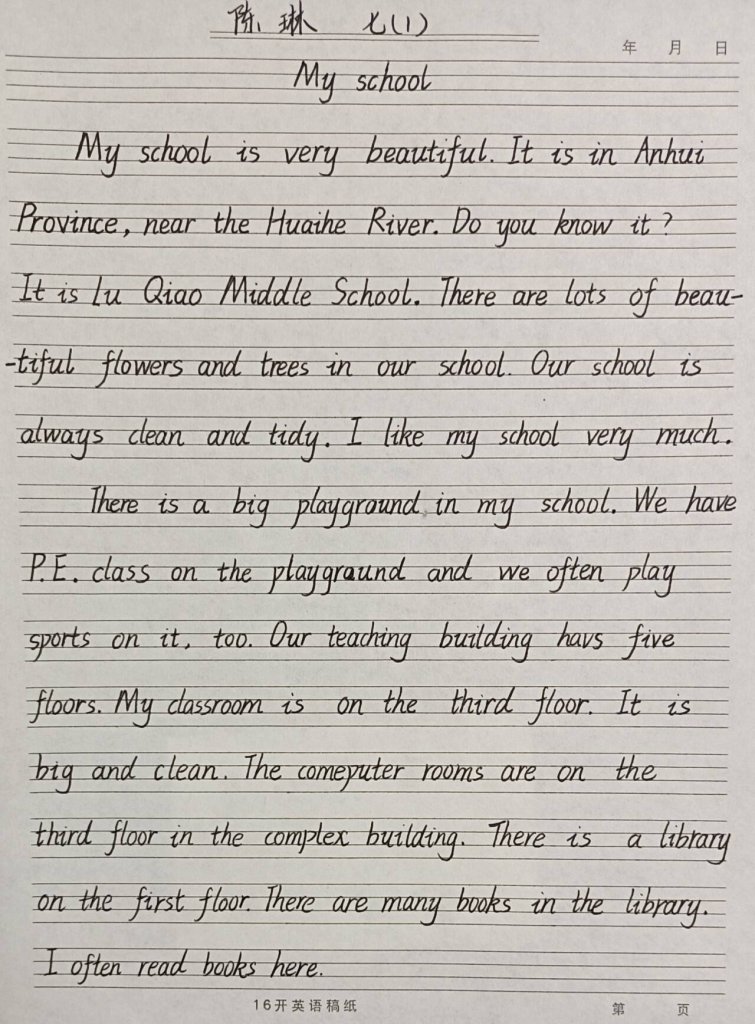 陈琳 七(1)
年 月 日
My school
My school is very beautiful. It is in Anhui
Province, near the Huaihe River. Do you know it?
It is Lu Qiao Middle School. There are lots of beau-
-tiful flowers and trees in our school. Our school is
always clean and tidy. I like my school very much.
There is a big playground in my school. We have
P.E. class on the playground and we often play
sports on it, too. Our teaching building havs five
floors. My classroom is on the third floor. It is
big and clean. The comeputer rooms are on the
third floor in the complex building. There is a library
on the first floor. There are many books in the library.
I often read books here.
16开英语稿纸 第 页